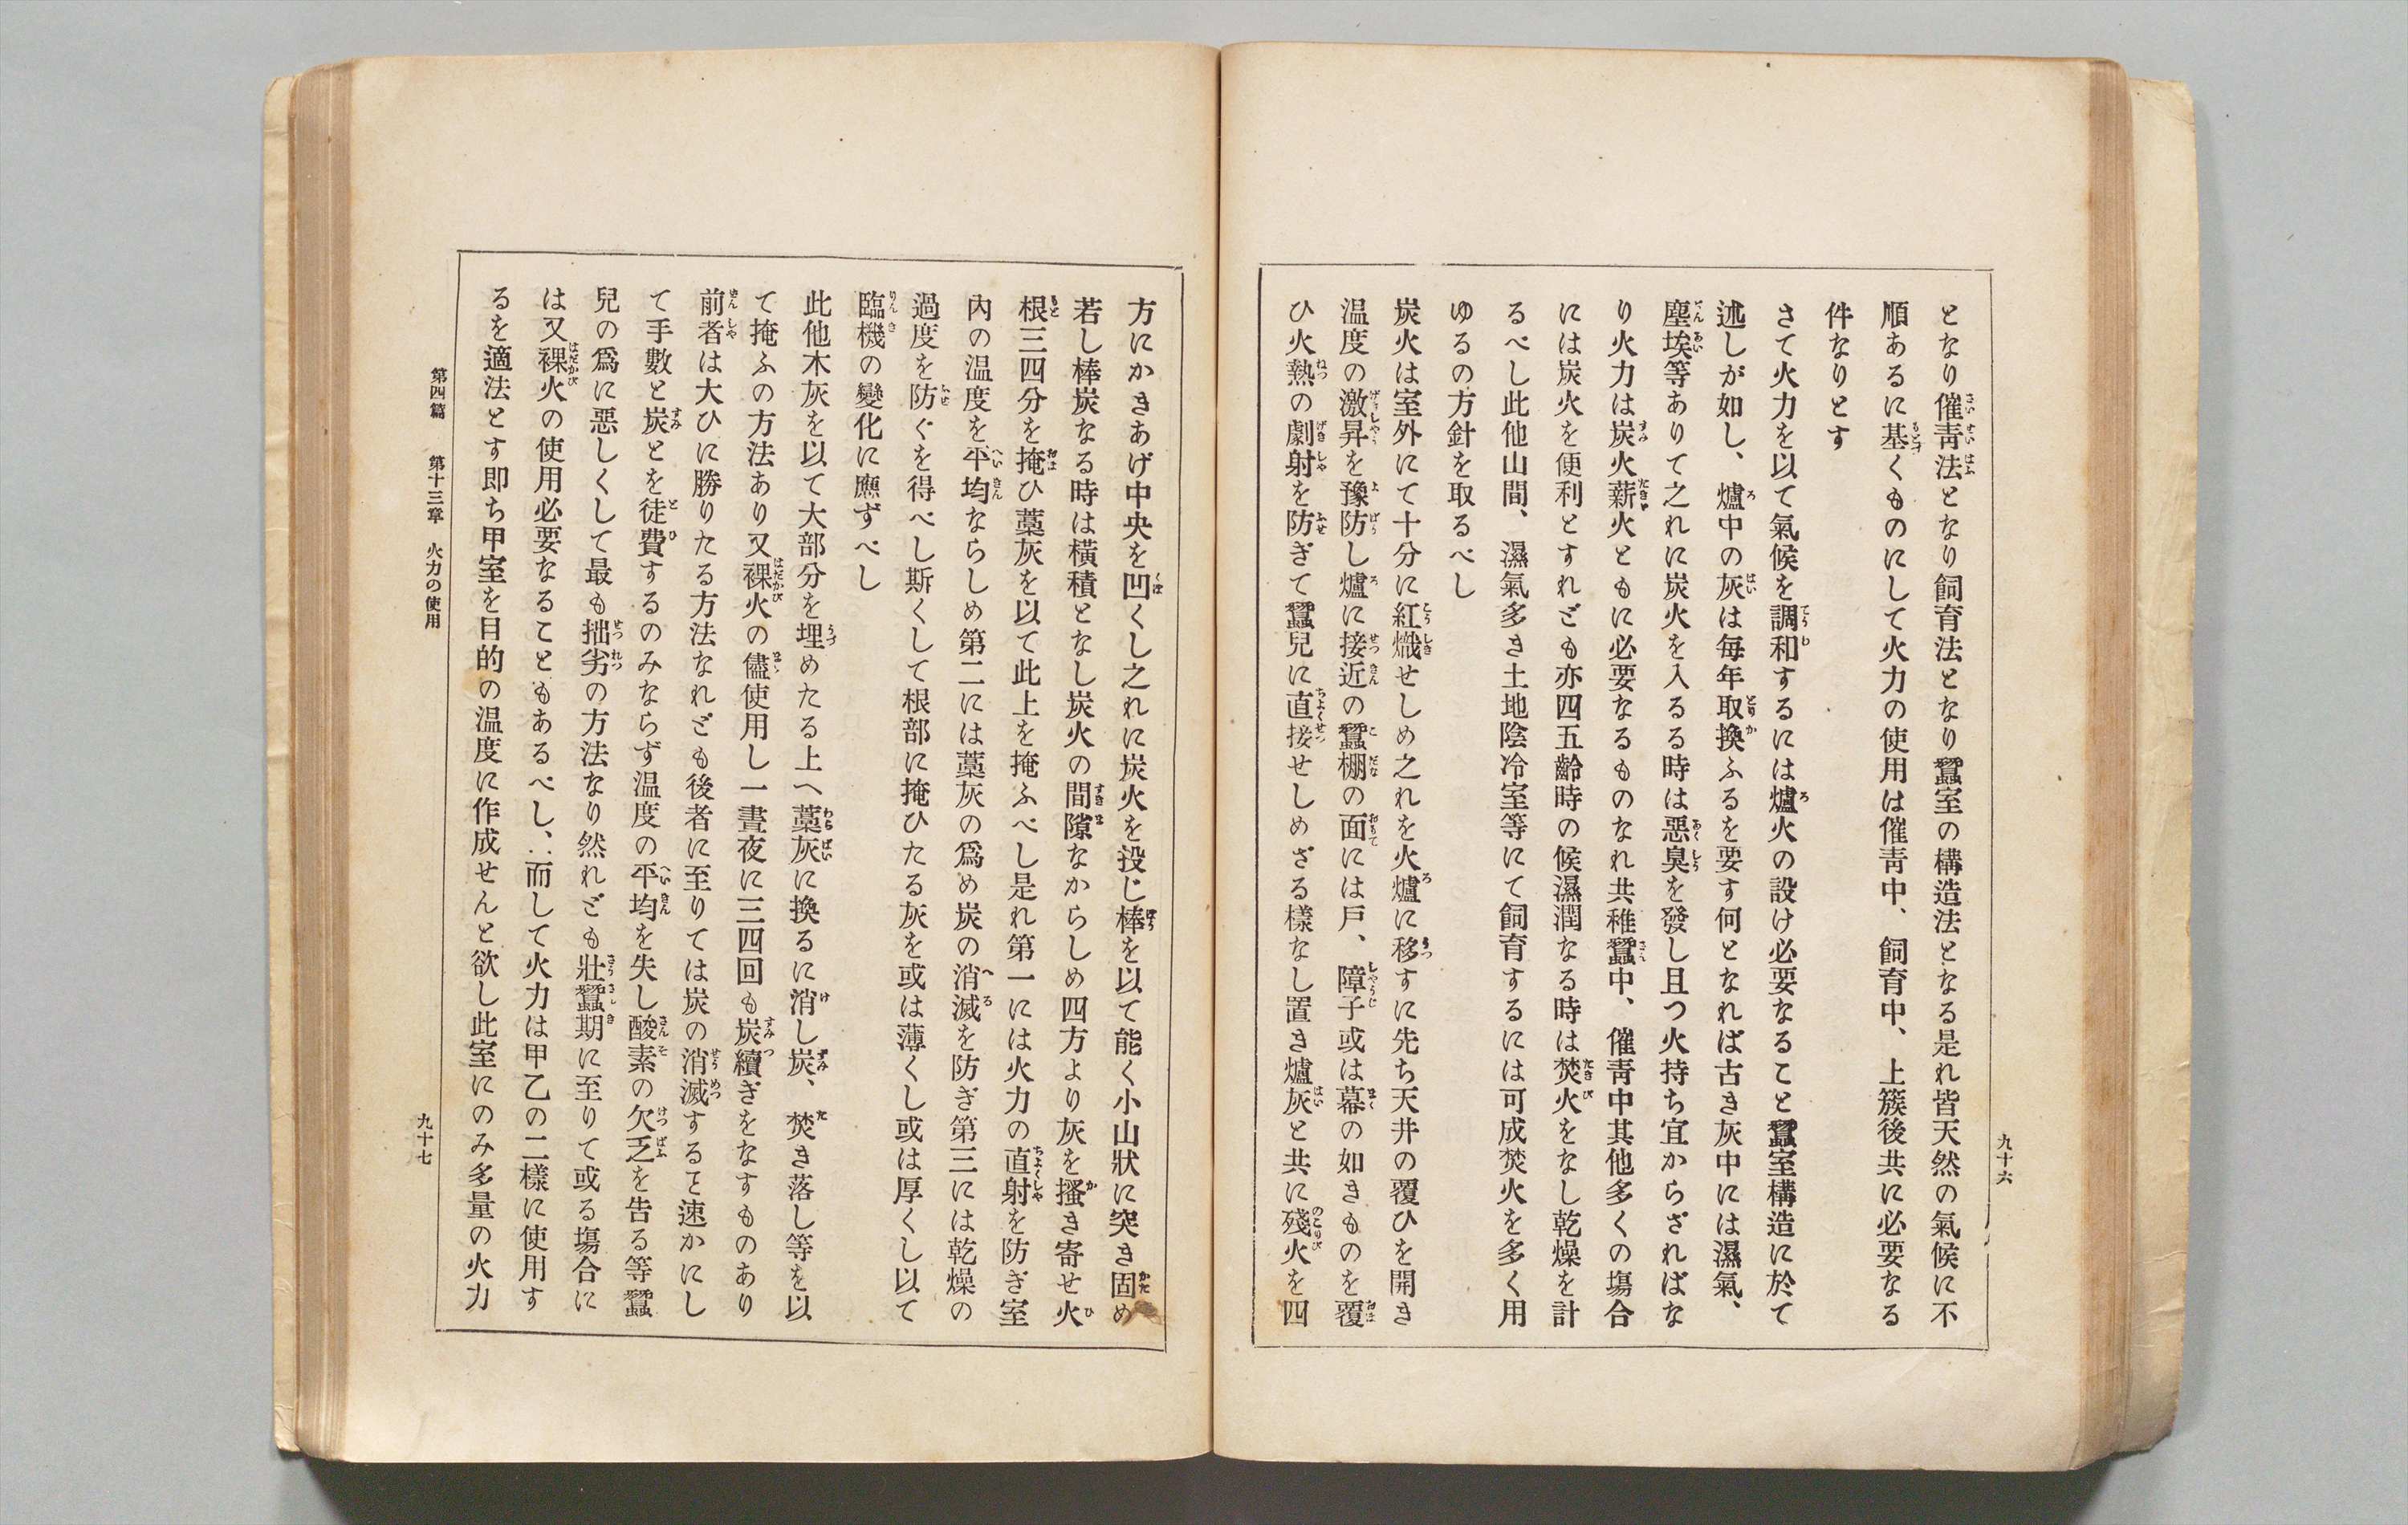 となり催靑法となり飼育法となり蠶室の構造法となる是れ皆天然の氣候に不
順あるに基くものにして火力の使用は催靑中、飼育中、上簇後共に必要なる
件なりとす
さて火力を以て氣候を調和するには爐火の設け必要なること蠶室構造に於て
述しが如し、爐中の灰は毎年取換ふるを要す何となれば古き灰中には濕氣、
塵埃等ありて之れに炭火を入るる時は惡臭を發し且つ火持ち宜からざればな
り火力は炭火薪火ともに必要なるものなれ共稚蠶中、催靑中其他多くの塲合
には炭火を便利とすれども亦四五齡時の候濕潤なる時は焚火をなし乾燥を計
るべし此他山間、濕氣多き土地陰冷室等にて飼育するには可成焚火を多く用
ゆるの方針を取るべし
炭火は室外にて十分に紅熾せしめ之れを火爐に移すに先ち天井の覆ひを開き
温度の激昇を豫防し爐に接近の蠶棚の面には戸、障子或は幕の如きものを覆
ひ火熱の劇射を防ぎて蠶兒に直接せしめざる樣なし置き爐灰と共に殘火を四
九十六
方にかきあげ中央を凹くし之れに炭火を投じ棒を以て能く小山狀に突き固め
若し棒炭なる時は橫積となし炭火の間隙なからしめ四方より灰を搔き寄せ火
根三四分を掩ひ藁灰を以て此上を掩ふべし是れ第一には火力の直射を防ぎ室
內の温度を平均ならしめ第二には藁灰の爲め炭の消滅を防ぎ第三には乾燥の
過度を防ぐを得べし斯くして根部に掩ひたる灰を或は薄くし或は厚くし以て
臨機の變化に應ずべし
此他木灰を以て大部分を埋めたる上へ藁灰に換るに消し炭、焚き落し等を以
て掩ふの方法あり又裸火の儘使用し一晝夜に三四回も炭續ぎをなすものあり
前者は大ひに勝りたる方法なれども後者に至りては炭の消滅すると速かにし
て手數と炭とを徒費するのみならず温度の平均を失し酸素の欠乏を吿る等蠶
兒の爲に惡しくして最も拙劣の方法なり然れども壯蠶期に至りて或る塲合に
は又裸火の使用必要なることもあるべし、而して火力は甲乙の二樣に使用す
るを適法とす即ち甲室を目的の温度に作成せんと欲し此室にのみ多量の火力
第四篇　第十三章　火力の使用
九十七